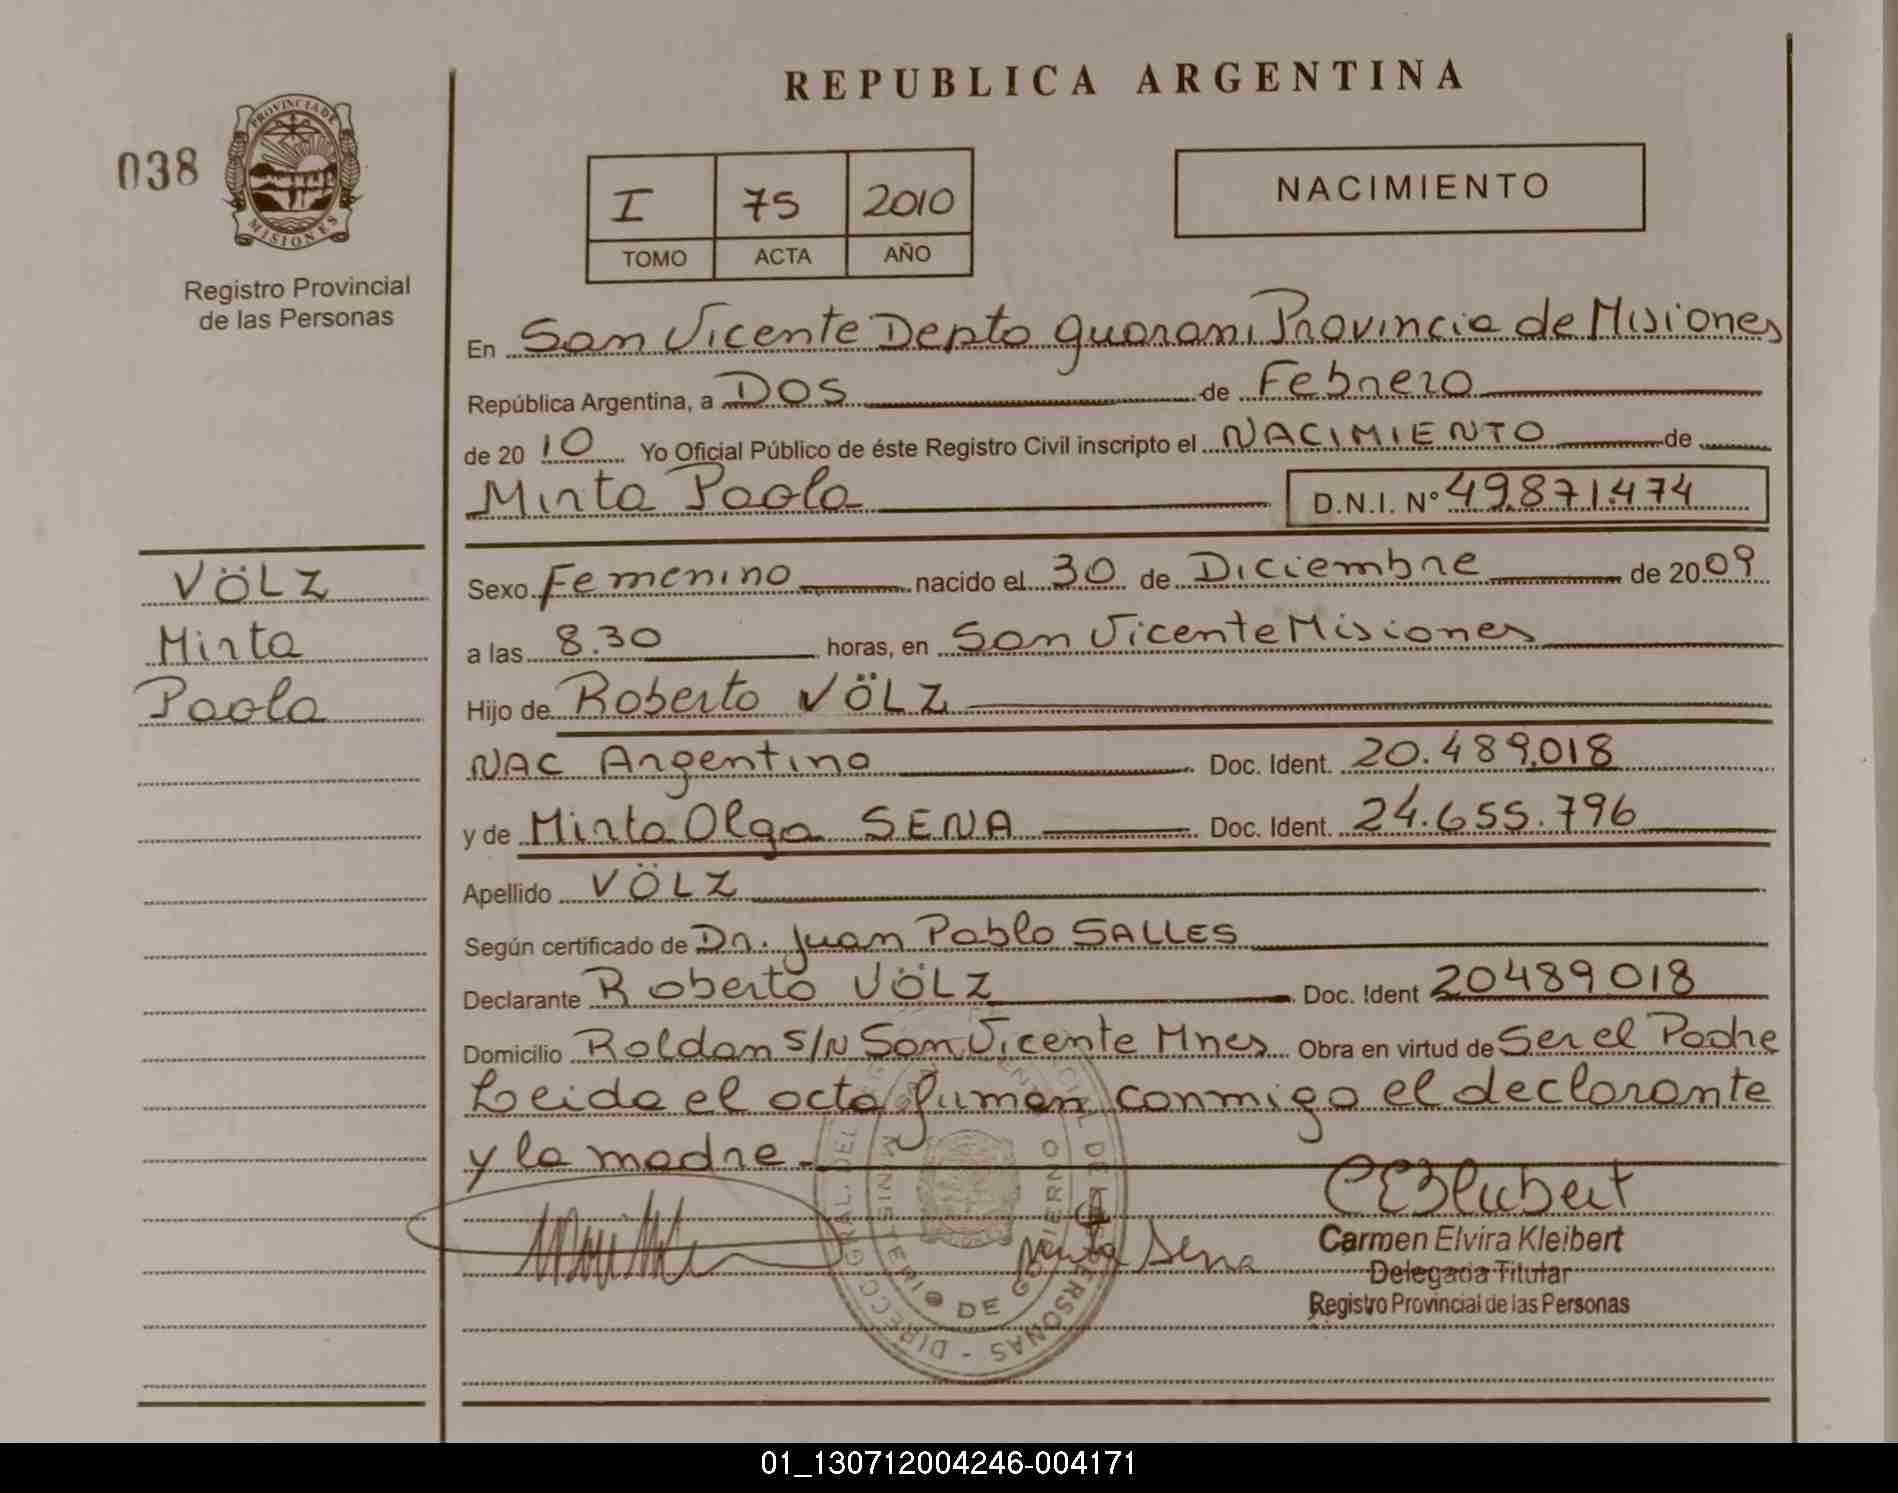 REPUBLICA ARGENTINA
038
PROVINCIA DE
MISIONES
Registro Provincial
de las Personas
I 75 2010
TOMO ACTA AÑO
NACIMIENTO
En San Vicente Depto Guarani Provincia de Misiones
República Argentina, a DOS de Febrero
de 2010 Yo Oficial Público de éste Registro Civil inscripto el NACIMIENTO de
Mirta Paola D.N.I. Nº 49.871.474
VÖLZ
Mirta
Paola
Sexo Femenino nacido el 30 de Diciembre de 2009
a las 8.30 horas, en San Vicente Misiones
Hijo de Roberto VÖLZ
NAC Argentina Doc. Ident. 20.489.018
y de Mirta Olga SENA Doc. Ident. 24.655.796
Apellido VÖLZ
Según certificado de Dr. Juan Pablo SALLES
Declarante Roberto VÖLZ Doc. Ident 20489018
Domicilio Roldan S/N San Vicente Mnes Obra en virtud de Ser el Padre
Leida el acta firman conmigo el declarante
y la madre.-
Mirta Sena
Carmen Elvira Kleibert
Delegada Titular
Registro Provincial de las Personas
MINISTERIO DE GOBIERNO
01_130712004246-004171